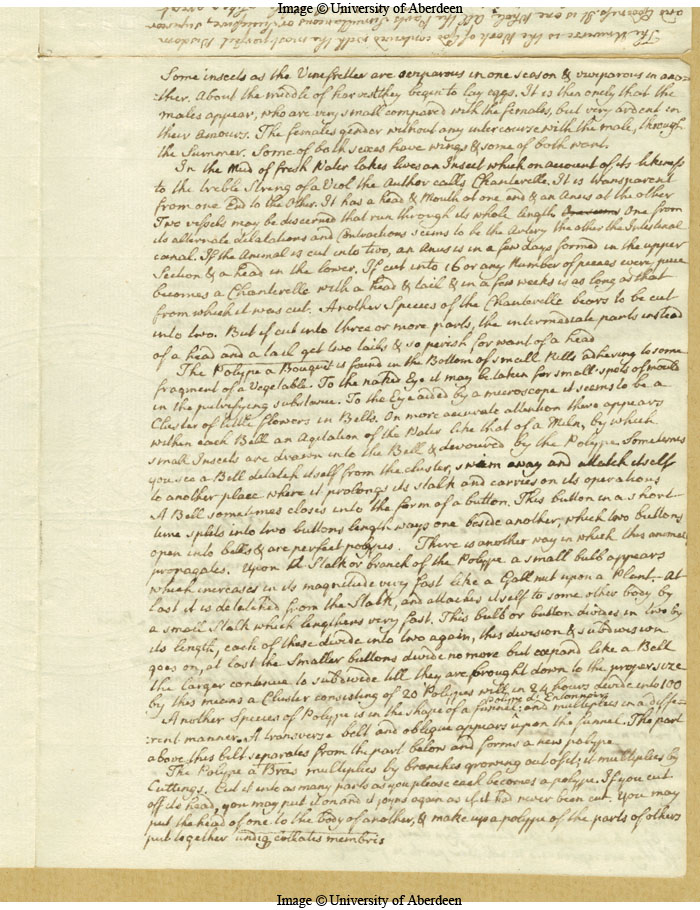 Image © University of Aberdeen
and Goodness. It is one Whole all the Parts
The Universe is the Work of God contrived with the most perfect Wisdom
Some insects as the Vinefretter are oviparous in one season & viviparous in ano=
:ther. About the middle of harvest they begin to lay eggs. It is then onely that the
males appear, who are very small compared with the females, but very ardent in
their Amours. The females gender without any intercourse with the male, through
the Summer. Some of both sexes have wings & some of both want.
In the Mud of fresh Water lakes lives an Insect which on account of its likeness
to the treble String of a Viol the Author calls Chanterelle. It is transparent
from one End to the Other. It has a head & Mouth at one end & an Anus at the other
Two vessels may be discerned that run through its whole length One from
its alternate dilatations and Contractions seems to be the Artery the other the Intestinal
canal. If the Animal is cut into two, an Anus is in a few days formed in the upper
Section & a head in the lower. If cut into 16 or any Number of pieces every piece
becomes a Chanterelle with a head & tail & in a few weeks is as long as that
from which it was cut. Another Species of the Chanterelle bears to be cut
into two. But if cut into three or more parts, the intermediate parts instead
of a head and a tail get two tails & so perish for want of a head
The Polype a Bouquet is found in the Bottom of small Rills adhering to some
fragment of a Vegetable. To the naked Eye it may be taken for small spots of mould
in the putrifying substance. To the Eye aided by a microscope it seems to be a
Cluster of little flowers in Bells. On more accurate attention there appears
within each Bell an Agitation of the Water like that of a Miln, by which
small Insects are drawn into the Bell & devoured by the Polype. Sometimes
you see a Bell detatch itself from the cluster, swim away and attatch itself
to another place where it prolongs its stalk and carries on its operations
A Bell sometimes closes into the form of a button. This button in a short
time splits into two buttons length ways one beside another, which two buttons
open into bells & are perfect polypes. There is another way in which this animal
propagates. Upon the Stalk or branch of the Polype a small bulb appears
which increases in its magnitude very fast like a Gall nut upon a Plant. At
last it is detatched from the Stalk, and attaches itself to some other body by
a small Stalk which lengthens very fast. This bulb or button divides in two by
its length, each of these divide into two again, this division & subdivision
goes on, at last the Smaller buttons divide no more but expand like a Bell
the larger continue to subdivide till they are brought down to the proper size
by this means a Cluster consisting of 20 Polypes will in 24 hours divide into 100
polype a Entonnoir
Another Species of Polype is in the shape of a funnel: and multiplies in a diffe=
:rent manner. A transverse belt and oblique appears upon the funnel. The part
above this belt separates from the part below and forms a new polype
The Polype a Bras multiplies by branches growing out of it; it multiplies by
Cuttings. Cut it into as many parts as you please each becomes a polype. If you cut
off its head, you may put it on and it joyns again as if it had never been cut. You may
put the head of one to the body of another, & make up a polype of the parts of others
put together undiq collatis membris
Image © University of Aberdeen